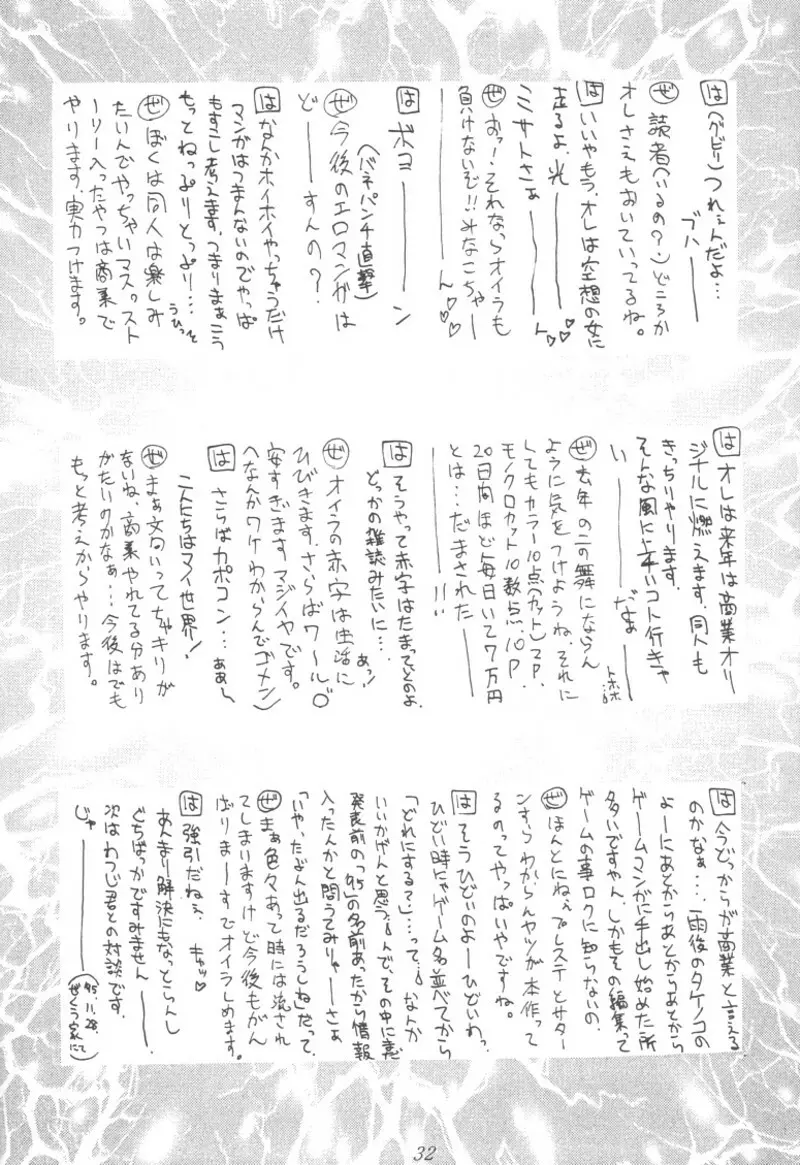 は (グビリ) つれェんだよ…
ブハ———
ぜ 読者(いるの?)どころか
オレさえもおいていってるね。
は いいやもう、オレは空想の女に
走るよ、光————
ミサトさぁ————ん♡♡
ぜ おっ!それならオイラも
負けないぞ!!みなこちゃ—
————ん♡♡
は ボコ————ン
(バネパンチ直撃)
ぜ 今後のエロマンガは
ど——すんの?
は なんかホイホイやっちゃうだけ
マンガはつまんないのでやっぱ
もすこし考えます。つまりまぁこう
もっとねっぷりとっぷり… うひっと
ぜ ぼくは同人は楽しみ
たいんでやっちゃいマス。スト
ーリー入ったやつは商業で
やります。実力つけます。
は オレは来年は商業オリ
ジナルに燃えます。同人も
きっちりやります。
そんな風にうまいコト行きゃ
い————だよ—— トホホ…
ぜ 去年の二の舞にならん
ように気をつけようね、それに
してもカラー10点(カット)2P、
モノクロカット10数点、10P
20日間ほど毎日いて7万円
とは…だまされた——
————!!
は そうやって赤字はたまってくのよ、
どっかの雑誌みたいに…
ぜ オイラの赤字は生活に あっ!
ひびきます。さらばワールド
安すぎます マジイヤです。
(なんかワケわからんでゴメン)
は さらばカポコン… ああ〜
こんにちはマイ世界!
ぜ まぁ文句いってちゃキリが
ないね、商業やれてる分あり
がたいのかなぁ…今後はでも
もっと考えからやります。
は 今どっからが商業と言える
のかなぁ…雨後のタケノコの
よーにあとからあとからあとから
ゲームコンガに手出し始めた所
多いですやん、しかもその編集って
ゲームの事ロクに知らないの、
ぜ ほんとにねぇ プレステとサター
ンすらわからんヤツが本作って
るのってやっぱいやですね。
は そうひどいのよーひどいわっ
ひどい時にゃゲーム名並べてから
「どれにする?」…って…。なんか
いいかげんと思う。んで、その中に意
発表前の「'95」の名前あったから情報
入ったんかと問うてみりゃーさぁ
「いや、たぶん出るだろうしね」だって、
ぜ まぁ色々あって時には流され
てしまいますけど今後もがん
ばりまーすでオイラしめます。
は 強引だねぇ、キャッ♡
あんまり解決にもなっとらんし
ぐちばっかですみません——、
次はわつじ君との対談です。
じゃ———— ('95.11.28. ぜくう家にて)
32